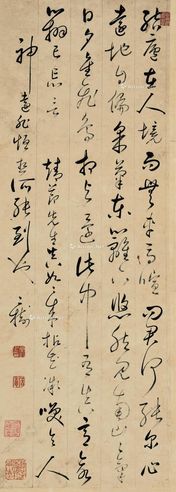 結廬在人境而無車馬喧問君何能爾心
遠地自偏采菊東籬下悠然見南山山氣
日夕佳飛鳥相與還此中有真意欲
辯已忘言 靖節先生真 人
神遠 能到